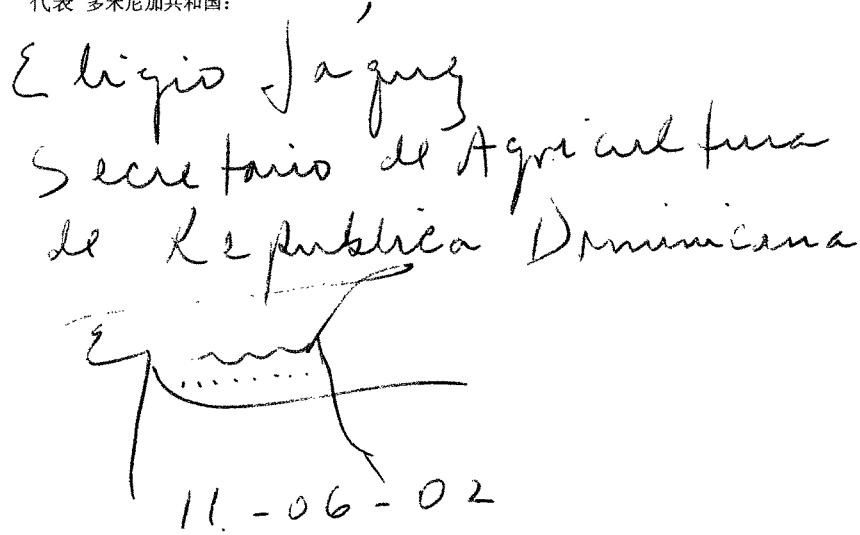 代表 多米尼加共和国:
Eligio Jáquez
Secretario de Agricultura
de República Dominicana
11-06-02